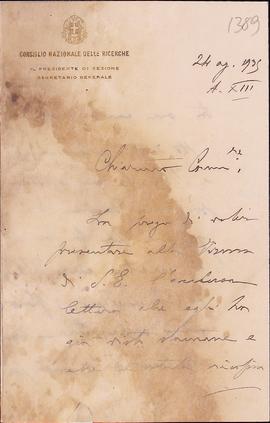 1389
CONSIGLIO NAZIONALE DELLE RICERCHE
IL PRESIDENTE DI SEZIONE
SEGRETARIO GENERALE
24 ag. 1935
A. XIII
Chiar.mo Comm.re
La prego di voler
presentare alla firma
di S. E. l'acclusa
lettera che egli ha
già visto stamane e